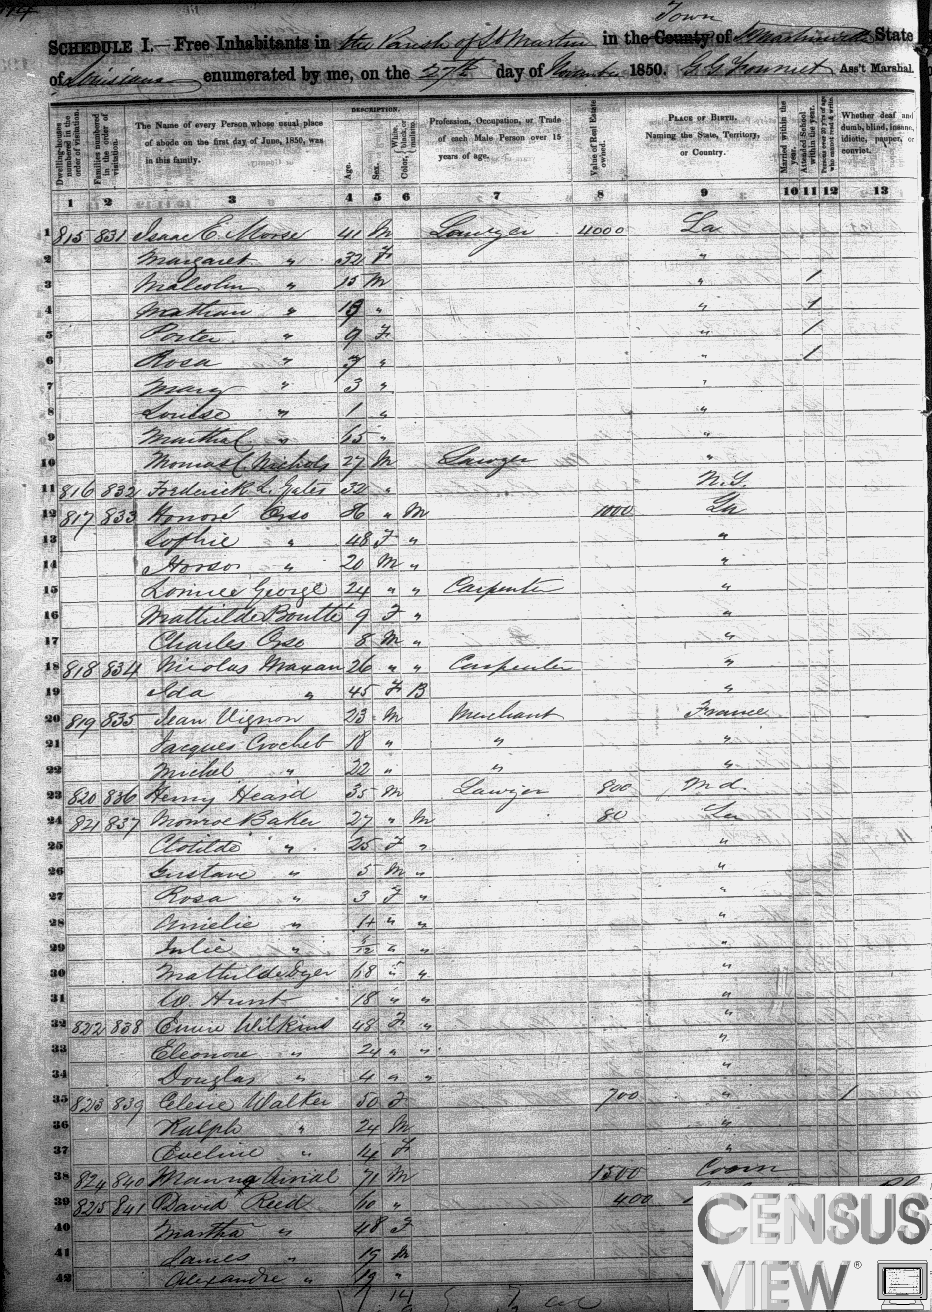 SCHEDULE I.—Free Inhabitants in the Parish of St Martin in the County Town of St Martinsville State
of Louisiana enumerated by me, on the 27th day of November 1850. Ass't Marshal.
Dwelling-houses numbered in the order of visitation.
Families numbered in the order of visitation.
The Name of every Person whose usual place of abode on the first day of June, 1850, was in this family.
DESCRIPTION.
Age.
Sex.
White, black, or mulatto.
Color,
Profession, Occupation, or Trade of each Male Person over 15 years of age.
Value of Real Estate owned.
PLACE OF BIRTH. Naming the State, Territory, or Country.
Married within the year.
Attended School within the year.
Persons over 20 y'rs of age who cannot read & write.
Whether deaf and dumb, blind, insane, idiotic, pauper, or convict.
1 2 3 4 5 6 7 8 9 10 11 12 13
1 815 831 Isaac E. Morse 41 M Lawyer 4000 La
2 Margaret " 32 F "
3 Malcolm " 15 M " /
4 Nathan " " " /
5 Porter " 9 F " /
6 Rosa " 7 " " /
7 Mary " 3 " "
8 Louise " 1 " "
9 Martha C " 65 " "
10 Thomas C. Nichols 27 M Lawyer "
11 816 832 Frederick L. Gates 32 " N.Y.
12 817 833 Honoré Orso " M 1000 La
13 Sophie " 48 F " "
14 " 20 M " "
15 George 24 " " Carpenter "
16 Mathilde Boutté 9 F " "
17 Charles Orso 8 M " "
18 818 834 Nicolas 26 " " Carpenter "
19 Ida " 45 F B "
20 819 835 Jean Vignon 23 M Merchant France
21 Jacques Crochet 18 " " "
22 Michel " 22 " " "
23 820 836 Henry Heard 35 M Lawyer 800 Md.
24 821 837 Monroe Baker 27 " M 80 La
25 Clotilde " 25 F " "
26 Gustave " 5 M " "
27 Rosa " 3 F " "
28 Amelie " " " "
29 Julie " " " "
30 Mathilde Dyer 68 " " "
31 W. Hunt 18 " " "
32 822 838 Wilkins 48 F " "
33 Eleonore " 24 " " "
34 Douglas " 4 " " "
35 823 839 Celesie Walker 50 F 700 " /
36 Ralph " 24 M "
37 Eveline " 14 F "
38 824 840 71 M 1500
39 825 841 David Reed 60 " 400
40 Martha " 48 F
41 James " M
42 Alexandre " 19 "
CENSUS
VIEW®